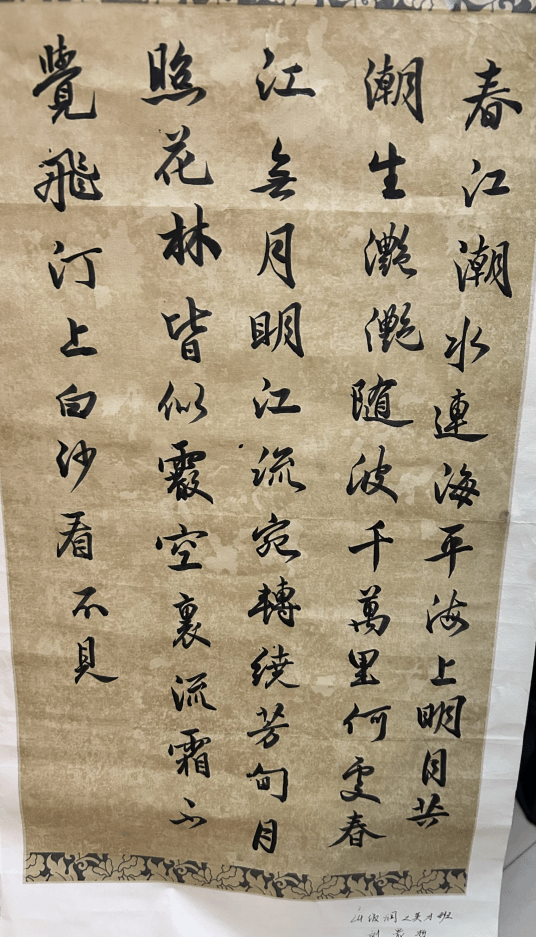 春江潮水連海平海上明月共
潮生灧灧随波千萬里何處春
江無月明江流宛轉繞芳甸月
照花林皆似霰空裏流霜不
覺飛汀上白沙看不見